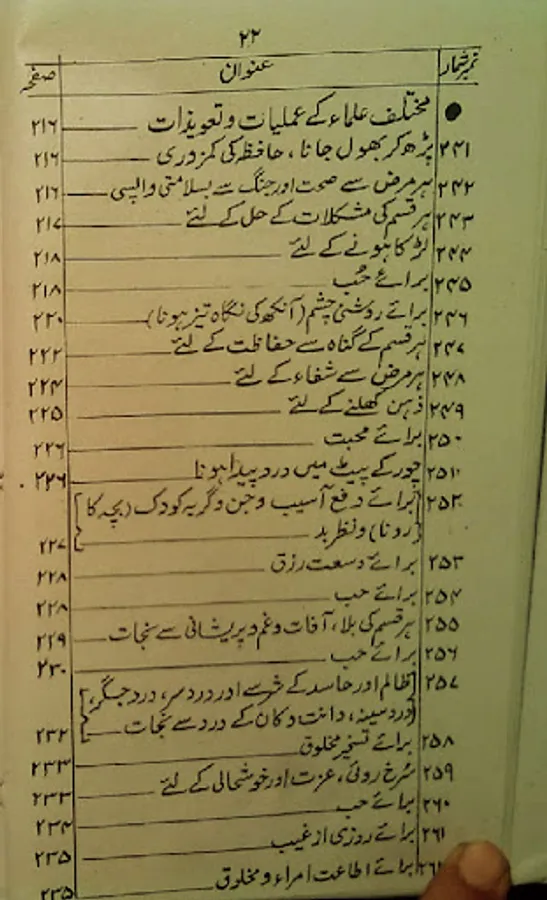 ۲۲
نمبر شمار عنوان صفحہ
● مختلف علماء کے عملیات و تعویذات ۲۱۶
۲۴۱ پڑھ کر بھول جانا، حافظہ کی کمزوری ۲۱۶
۲۴۲ ہر مرض سے صحت اور جنگ سے بسلامتی واپسی ۲۱۶
۲۴۳ ہر قسم کی مشکلات کے حل کے لئے ۲۱۷
۲۴۴ لڑکا ہونے کے لئے ۲۱۸
۲۴۵ برائے حُب ۲۱۸
۲۴۶ برائے روشنیِ چشم (آنکھ کی نگاہ تیز ہونا) ۲۲۰
۲۴۷ ہر قسم کے گناہ سے حفاظت کے لئے ۲۲۲
۲۴۸ ہر مرض سے شفاء کے لئے ۲۲۴
۲۴۹ ذہن کھلنے کے لئے ۲۲۵
۲۵۰ برائے محبت ۲۲۶
۲۵۱ چور کے پیٹ میں درد پیدا ہونا ۲۲۶
۲۵۲ برائے دفع آسیب و جن و گریہ کودک (بچہ کا
رونا) و نظر بد ۲۲۷
۲۵۳ برائے وسعت رزق ۲۲۸
۲۵۴ برائے حب ۲۲۸
۲۵۵ ہر قسم کی بلا، آفات و غم و پریشانی سے نجات ۲۲۹
۲۵۶ برائے حب ۲۳۰
۲۵۷ ظالم اور حاسد کے شر سے اور درد سر، درد جگر،
درد سینہ، دانت و کان کے درد سے نجات ۲۳۲
۲۵۸ برائے تسخیر مخلوق ۲۳۳
۲۵۹ سُرخ روئی، عزت اور خوشحالی کے لئے ۲۳۳
۲۶۰ برائے حب ۲۳۴
۲۶۱ برائے روزی از غیب ۲۳۵
برائے اطاعت امراء و مخلوق ۲۳۵